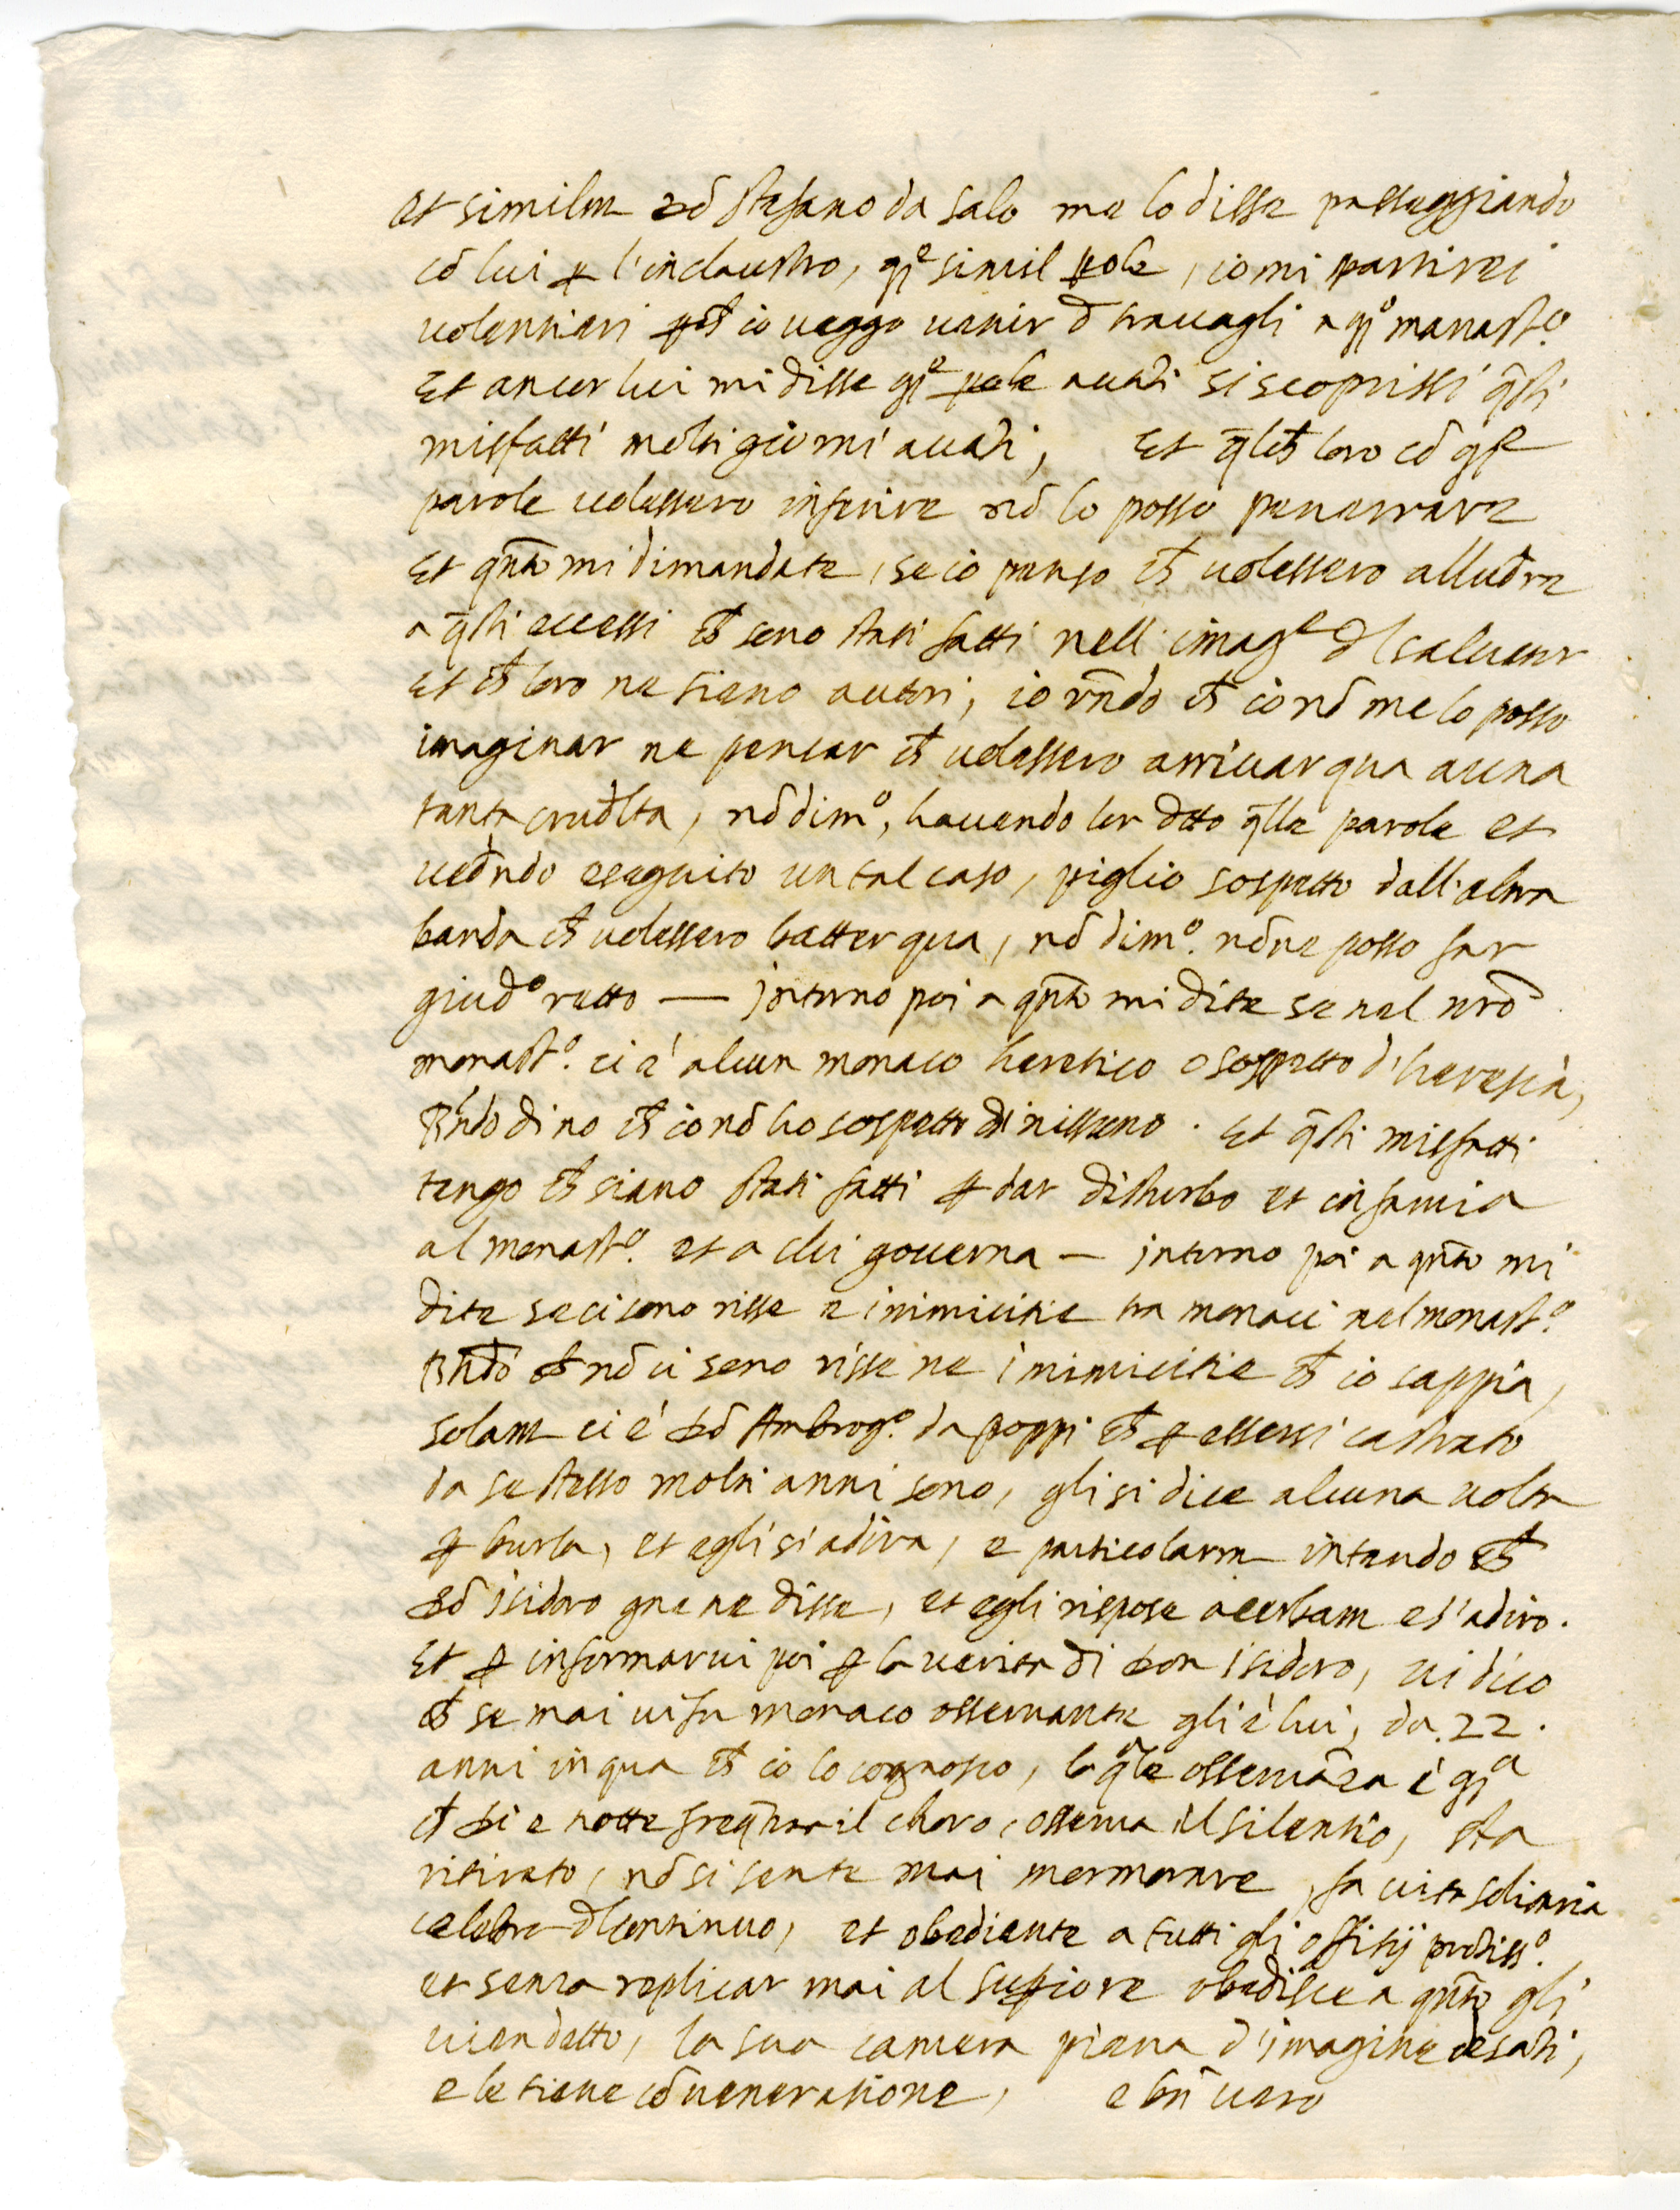 et similm̃ Dõ stefano da salo me lo disse passeggiando
cõ lui ꝑ l'inclaustro, qs̃e simil ꝑole, io mi partirei
uolentieri ꝑch̃ io ueggo uenir d̃ trauagli a qs̃o monastº.
Et ancor lui mi disse qs̃e ꝑole auãti si scoprissi q̃sti
misfatti molti giorni auãti, Et q̃l ch̃ loro cõ qs̃e
parole uolessero inferire nõ lo posso penetrare
Et qñto mi dimandate, se io penso ch̃ uolessero allud̃re
a q̃sti eccessi ch̃ sono stati fatti nell'imagᵉ d̃l saluator
et ch̃ loro ne siano autori, io rñdo ch̃ io nõ me lo posso
imaginar ne pensar ch̃ uolessero arriuar qua a una
tanta crud̃lta, nõdimº, hauendo lor d̃tto q̃lle parole et
ued̃ndo eseguito un tal caso, piglio sospetto dall'altra
banda ch̃ uolessero batter qua, nõ dimº. nõ ne posso far
giud̃º retto — jntorno poi a qñto mi dite se nel nrõ
monastº. ci è alcun monaco heretico o sospetto d'heresia,
Rñdo di no ch̃ io nõ ho sospetto di nissuno. Et q̃sti misfatti
tengo ch̃ siano stati fatti ꝑ dar disturbo et infamia
al monastº. et a chi gouerna — jntorno poi a qñto mi
dite se ci sono risse e inimicitie tra monaci nel monastº.
Rñdo ch̃ nõ ci sono risse ne inimicitie ch̃ io sappia,
solam̃ ci è Dõ Ambrogº. da poppi ch̃ ꝑ essersi castrato
da se stesso molti anni sono, gli si dice alcuna uolta
ꝑ burla, et egli si adira, e particolarm̃ intendo ch̃
Dõ isidoro gne ne disse, et egli rispose acerbam̃ e s'adiro.
Et ꝑ informarui poi ꝑ la uerita di Don isidoro, ui dico
ch̃ se mai ui fu monaco osseruante gli è lui, da .22.
anni in qua ch̃ io lo cognosco, la q̃le osseruãza è qs̃a
ch̃ di e notte freq̃nta il choro, osserua il silentio, sta
ritirato, nõ si sente mai mormorare, fa uita solitaria
celebra d̃l continuo, et obediente a tutti gli offitij prõtissº.
et senza replicar mai al suꝑiore obedisce a qñto gli
uien detto, la sua camera piena d'imagine de sãti,
e le tiene cõ ueneratione, e bñ uero